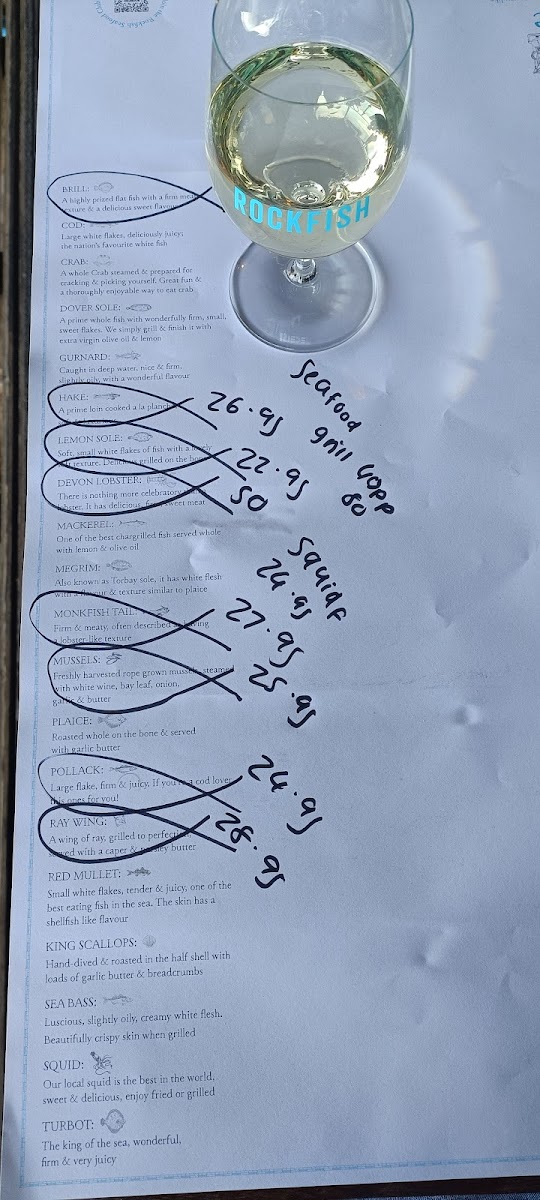 ROCKFISH
BRILL:
A highly prized flat fish with a firm meaty
texture & a delicious sweet flavour
COD:
Large white flakes, deliciously juicy;
the nation's favourite white fish
CRAB:
A whole Crab steamed & prepared for
cracking & picking yourself. Great fun &
a thoroughly enjoyable way to eat crab
DOVER SOLE:
A prime whole fish with wonderfully firm, small,
sweet flakes. We simply grill & finish it with
extra virgin olive oil & lemon
GURNARD:
Caught in deep water, nice & firm,
slightly oily, with a wonderful flavour
Seafood
grill 40pp
80
HAKE:
26.95
A prime loin cooked a la plancha
LEMON SOLE:
22.95
Soft, small white flakes of fish with a lovely
texture. Delicious grilled on the bone
DEVON LOBSTER:
50
There is nothing more celebratory
lobster. It has delicious, firm, sweet meat
MACKEREL:
One of the best chargrilled fish served whole
with lemon & olive oil
Squid
24.95
MEGRIM:
Also known as Torbay sole, it has white flesh
with a flavour & texture similar to plaice
MONKFISH TAIL:
27.95
Firm & meaty, often described as having
a lobster-like texture
MUSSELS:
25.95
Freshly harvested rope grown mussels, steamed
with white wine, bay leaf, onion,
garlic & butter
PLAICE:
Roasted whole on the bone & served
with garlic butter
POLLACK:
24.95
Large flake, firm & juicy. If you're a cod lover
this ones for you!
RAY WING:
28.95
A wing of ray, grilled to perfection,
served with a caper & parsley butter
RED MULLET:
Small white flakes, tender & juicy, one of the
best eating fish in the sea. The skin has a
shellfish like flavour
KING SCALLOPS:
Hand-dived & roasted in the half shell with
loads of garlic butter & breadcrumbs
SEA BASS:
Luscious, slightly oily, creamy white flesh.
Beautifully crispy skin when grilled
SQUID:
Our local squid is the best in the world,
sweet & delicious, enjoy fried or grilled
TURBOT:
The king of the sea, wonderful,
firm & very juicy